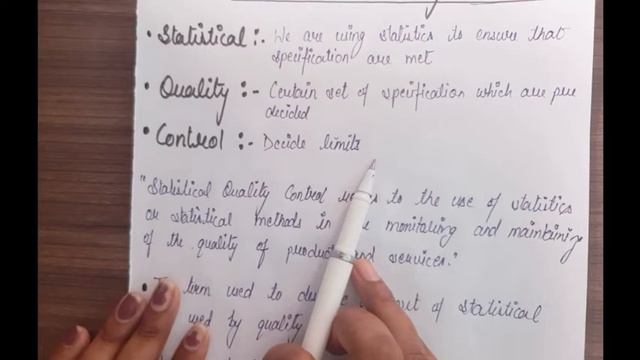 • Statistical :- We are using statistics to ensure that
specification are met
• Quality :- Certain set of specification which are pre
decided
• Control :- Decide limits
"Statistical Quality Control to the use of statistics
or statistical methods in monitoring and maintaining
of the quality of product and services."
• term used to set of statistical
used by quality